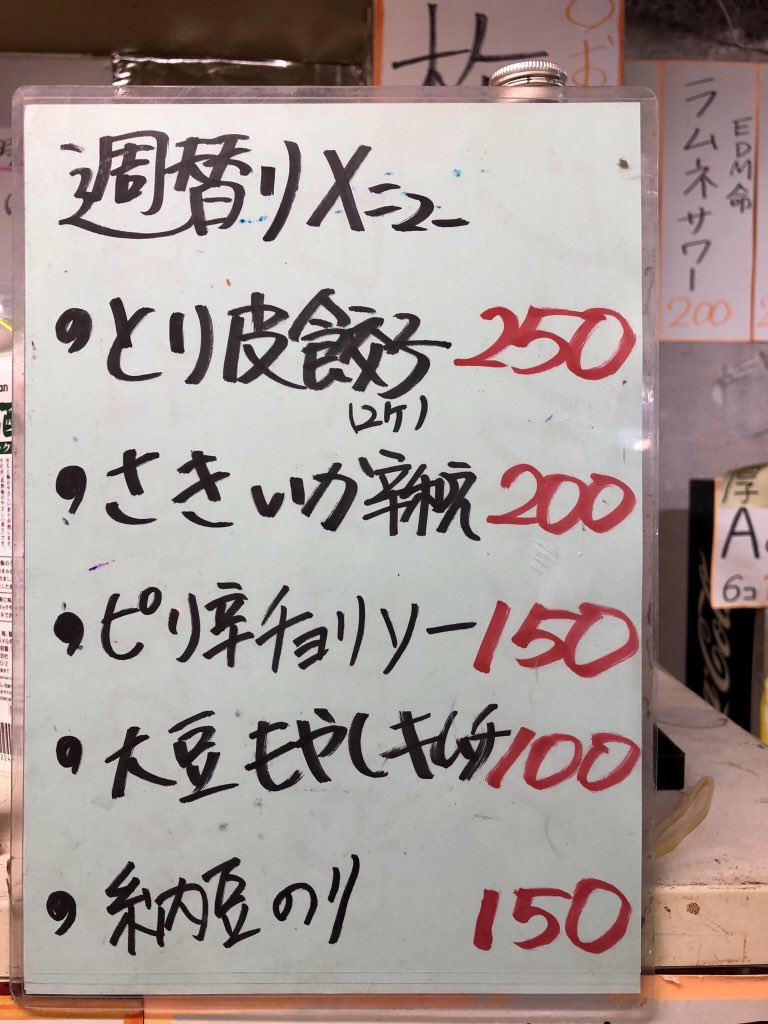 週替りメニュー
・とり皮餃子 250
(2ケ)
・さきいか辛純 200
・ピリ辛チョリソー 150
・大豆もやしキムチ 100
・納豆のり 150
EDM命
ラムネサワー
200
A
6コ